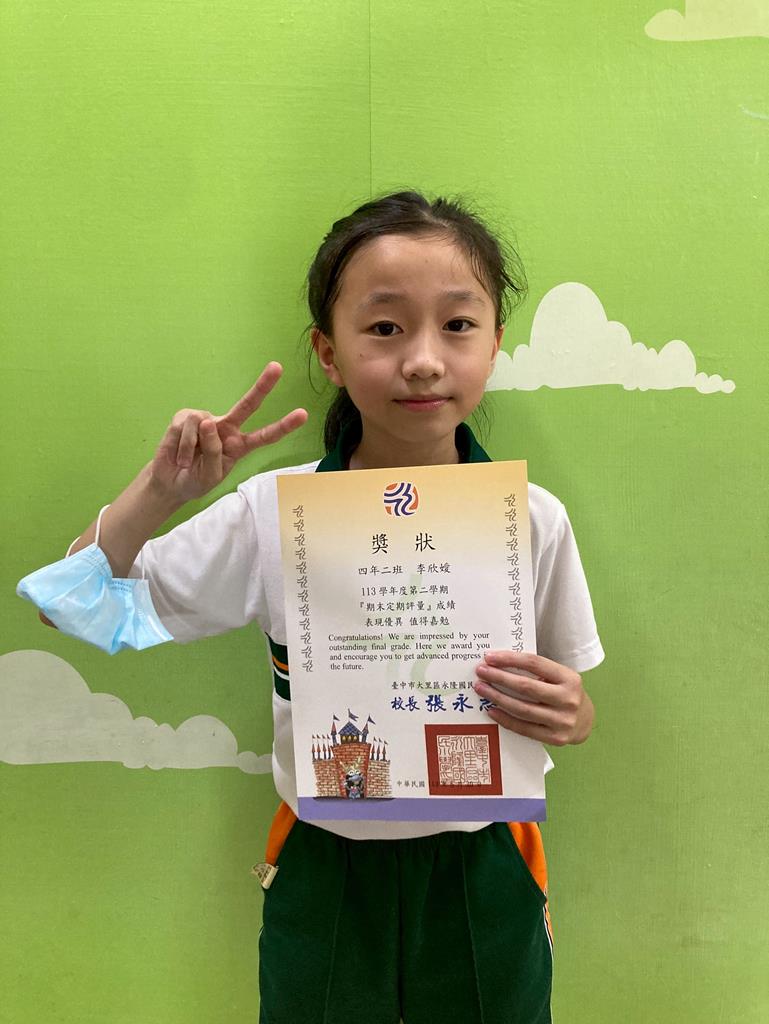 獎 狀
四年二班 李欣嬡
113 學年度第二學期
『期末定期評量』成績
表現優異 值得嘉勉
Congratulations! We are impressed by your
outstanding final grade. Here we award you
and encourage you to get advanced progress
the future.
臺中市大里區永隆國民
校長 張永
中華民國